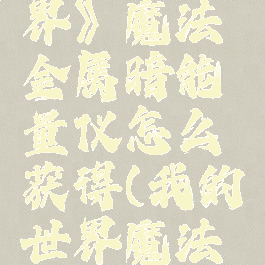 界》魔法
金属暗能
量仪怎么
获得(我的
世界魔法